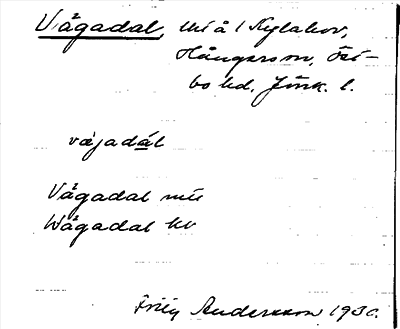 Vågadal, thi å l Kylahov,
Hångers sn, Öst-
bo hd, Jönk. l.
vajadål
Vågadal mu
Wågadal kv
Fritz Andersson 1930.